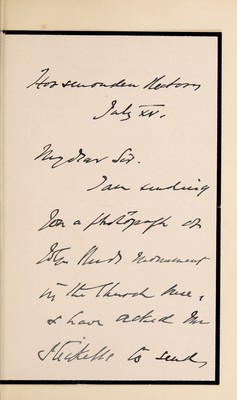 Horsmonden Rectory
July XV.
My dear Sir.
I am sending
you a photograph of
monument
in the Church here,
& have asked Mr
to send